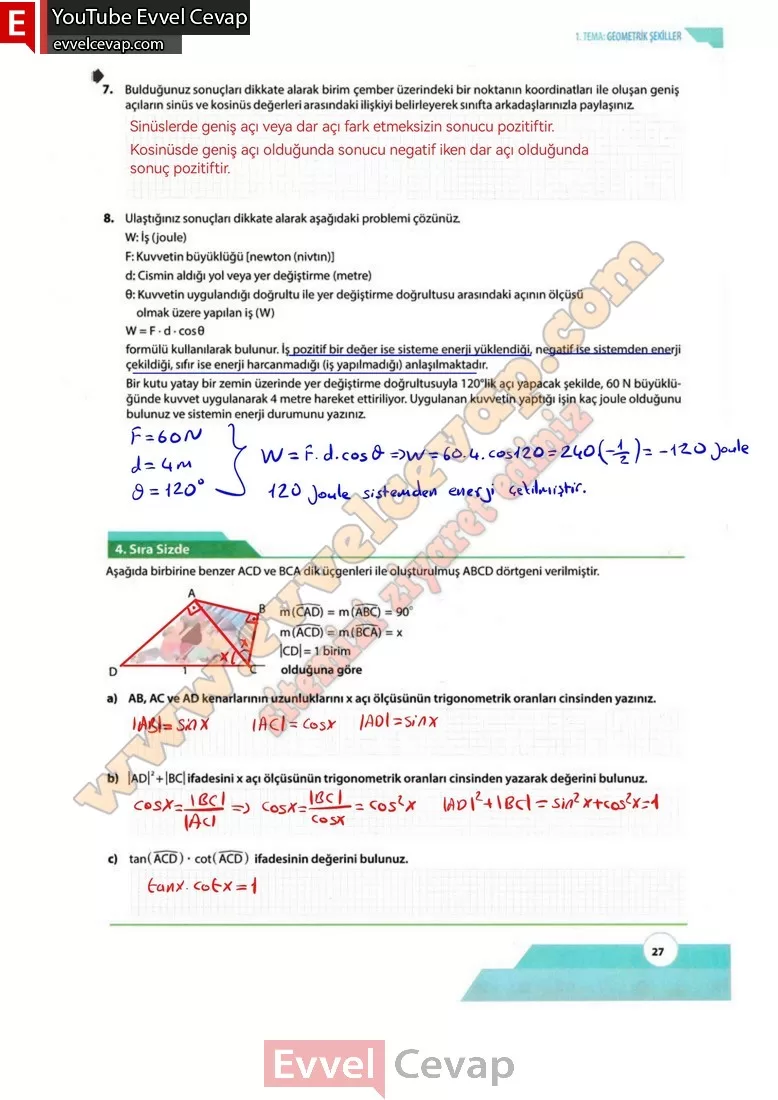 E YouTube Evvel Cevap
evvelcevap.com
1. TEMA: GEOMETRİK ŞEKİLLER
7. Bulduğunuz sonuçları dikkate alarak birim çember üzerindeki bir noktanın koordinatları ile oluşan geniş
açıların sinüs ve kosinüs değerleri arasındaki ilişkiyi belirleyerek sınıfta arkadaşlarınızla paylaşınız.
Sinüslerde geniş açı veya dar açı fark etmeksizin sonucu pozitiftir.
Kosinüsde geniş açı olduğunda sonucu negatif iken dar açı olduğunda
sonuç pozitiftir.
8. Ulaştığınız sonuçları dikkate alarak aşağıdaki problemi çözünüz.
W: İş (joule)
F: Kuvvetin büyüklüğü [newton (nivtın)]
d: Cismin aldığı yol veya yer değiştirme (metre)
θ: Kuvvetin uygulandığı doğrultu ile yer değiştirme doğrultusu arasındaki açının ölçüsü
olmak üzere yapılan iş (W)
W = F · d · cosθ
formülü kullanılarak bulunur. İş pozitif bir değer ise sisteme enerji yüklendiği, negatif ise sistemden enerji
çekildiği, sıfır ise enerji harcanmadığı (iş yapılmadığı) anlaşılmaktadır.
Bir kutu yatay bir zemin üzerinde yer değiştirme doğrultusuyla 120°lik açı yapacak şekilde, 60 N büyüklü-
ğünde kuvvet uygulanarak 4 metre hareket ettiriliyor. Uygulanan kuvvetin yaptığı işin kaç joule olduğunu
bulunuz ve sistemin enerji durumunu yazınız.
F = 60 N
d = 4 m
θ = 120°
W = F. d. cos θ => W = 60.4. cos120 = 240 (-1/2) = -120 Joule
120 Joule sistemden enerji çekilmiştir.
4. Sıra Sizde
Aşağıda birbirine benzer ACD ve BCA dik üçgenleri ile oluşturulmuş ABCD dörtgeni verilmiştir.
A
B
x
x
D
1
C
m(CAD) = m(ABC) = 90°
m(ACD) = m(BCA) = x
|CD| = 1 birim
olduğuna göre
a) AB, AC ve AD kenarlarının uzunluklarını x açı ölçüsünün trigonometrik oranları cinsinden yazınız.
|AB| = sinx |AC| = cosx |AD| = sinx
b) |AD|² + |BC| ifadesini x açı ölçüsünün trigonometrik oranları cinsinden yazarak değerini bulunuz.
cosx = |BC|/|AC| => cosx = |BC|/cosx = cos²x |AD|² + |BC| = sin²x + cos²x = 1
c) tan(ACD) · cot(ACD) ifadesinin değerini bulunuz.
tanx. cotx = 1
27
www.evvelcevap.com
sitemizi ziyaret ediniz
Evvel Cevap